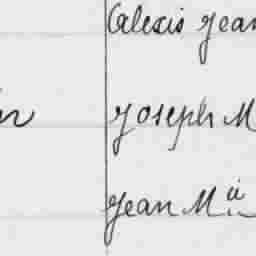 Alexis Jean
Joseph M
Jean M